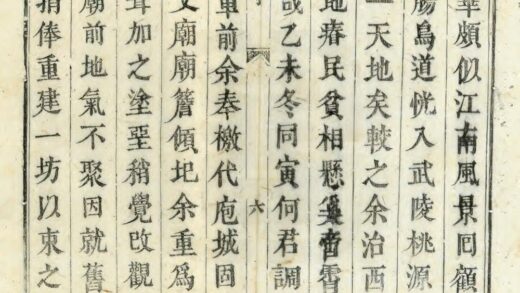 華頗似江南風景囘顧
腸鳥道恍入武陵桃源
一天地矣較之余治西
地瘠民貧相懸奚啻霄
哉乙未冬同寅何君調
六
重前余奉檄代庖城固
文廟廟簷傾圮余重爲
葺加之塗堊稍覺改觀
廟前地氣不聚因就舊
捐俸重建一坊以束之